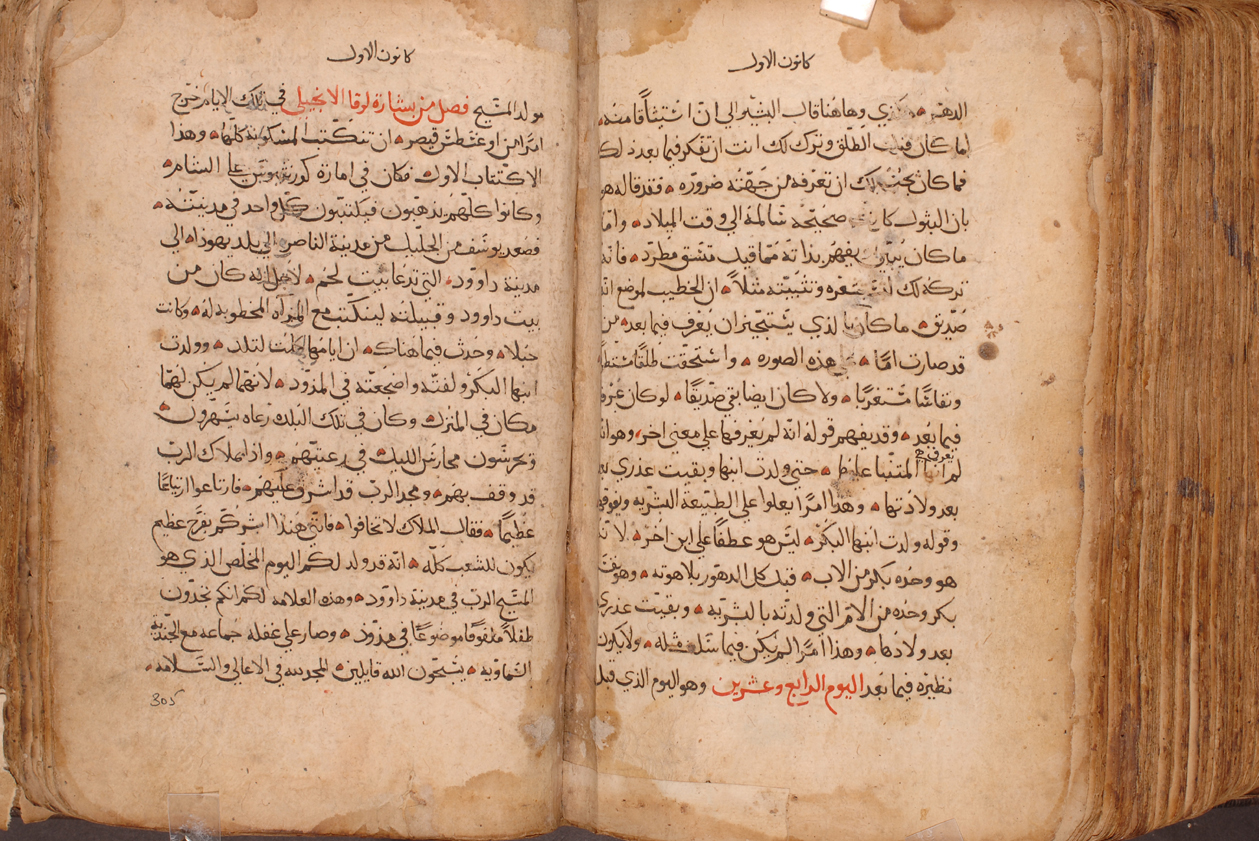 كانون الاول
الدهر وهاهنا قال البشير الي ان استيثاقا منه
لما كان قبل الطلق وترك لك انت ان تفكر فيما بعد ذلك
فما كان يجب لك ان تعرفه من جهته ضروره فقد قاله هو
بان البتول كانت صحيحة سالمة الي وقت الميلاد واما
ما كان يفهم بذاته مما قيل متسق مطرد فانه
تركه لك وتثبيته مثلا ان الخطيب لموضع انه
صديق ما كان بالذي يستجيز ان يعرف فيما بعد من
قد صارت اما علي هذه الصوره واستحقت طلقا
ونفاسا مستغربا ولا كان ايضا بقي صديقا لو كان عرف
فيما بعد وقد يفهم قوله انه لم يعرفها علي معني اخر وهو انه
يعرف
لم انها حتي ولدت ابنها وبقيت عذري بعد
بعد ولادتها وهذا امرا يعلوا علي الطبيعة البشريه ويفوقها
وقوله ولدت ابنها البكر ليس هو عطفا علي ابن اخر لانه
هو وحده بكر من الاب قبل كل الدهور بلاهوته وهو
بكر وحده من الام التي ولدته بالبشريه وبقيت عذري
بعد ولادها وهذا امرا لم يكن فيما سلف مثله ولا يكون
نظيره فيما بعد اليوم الرابع وعشرين وهو اليوم الذي قبل
كانون الاول
مولد المسيح فصل من بشارة لوقا الانجيلي في تلك الايام خرج
امرا من اوغسطس قيصر ان تكتتب المسكونة كلها وهذا
الاكتتاب الاول فكان في امارة كورينيوس علي الشام
وكانوا كلهم يذهبون فيكتتبون كل واحد في مدينته
فصعد يوسف من الجليل من مدينة الناصره الي بلد يهوذا الي
مدينة داوود التي تدعا بيت لحم لاجل انه كان من
بيت داوود وقبيلته ليتكتب مع المرآه المخطوبه له وكانت
حبلا وحدث فيما هناك ان ايامها كملت لتلد وولدت
ابنها البكر ولفته واضجعته في المذود لانهما لم يكن لهما
مكان في المنزل وكان في تلك البلد رعاه يسهرون
وتحرسون محارس الليل في رعيتهم واذا ملاك الرب
قد وقف بهم ومجد الرب قد اشرف عليهم فارتاعوا ارتياعا
عظيما فقال الملاك لا تخافوا فانني هنذا ابشركم بفرح عظيم
يكون للشعب كله انه قد ولد لكم اليوم المخلص الذي هو
المسيح الرب في مدينة داوود وهذه العلامه لكم انكم تجدون
طفلا ملفوفا موضوعا في مذود وصار علي غفله جماعه مع الجنديه
السماويه يسبحون الله قايلين المجد لله في الاعالي والسلامه
305